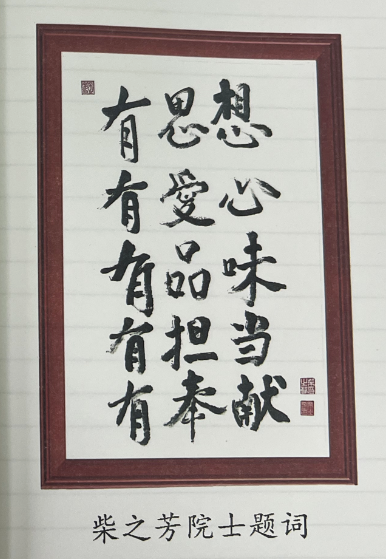 有思想
有爱心
有品味
有担当
有奉献
柴之芳院士题词